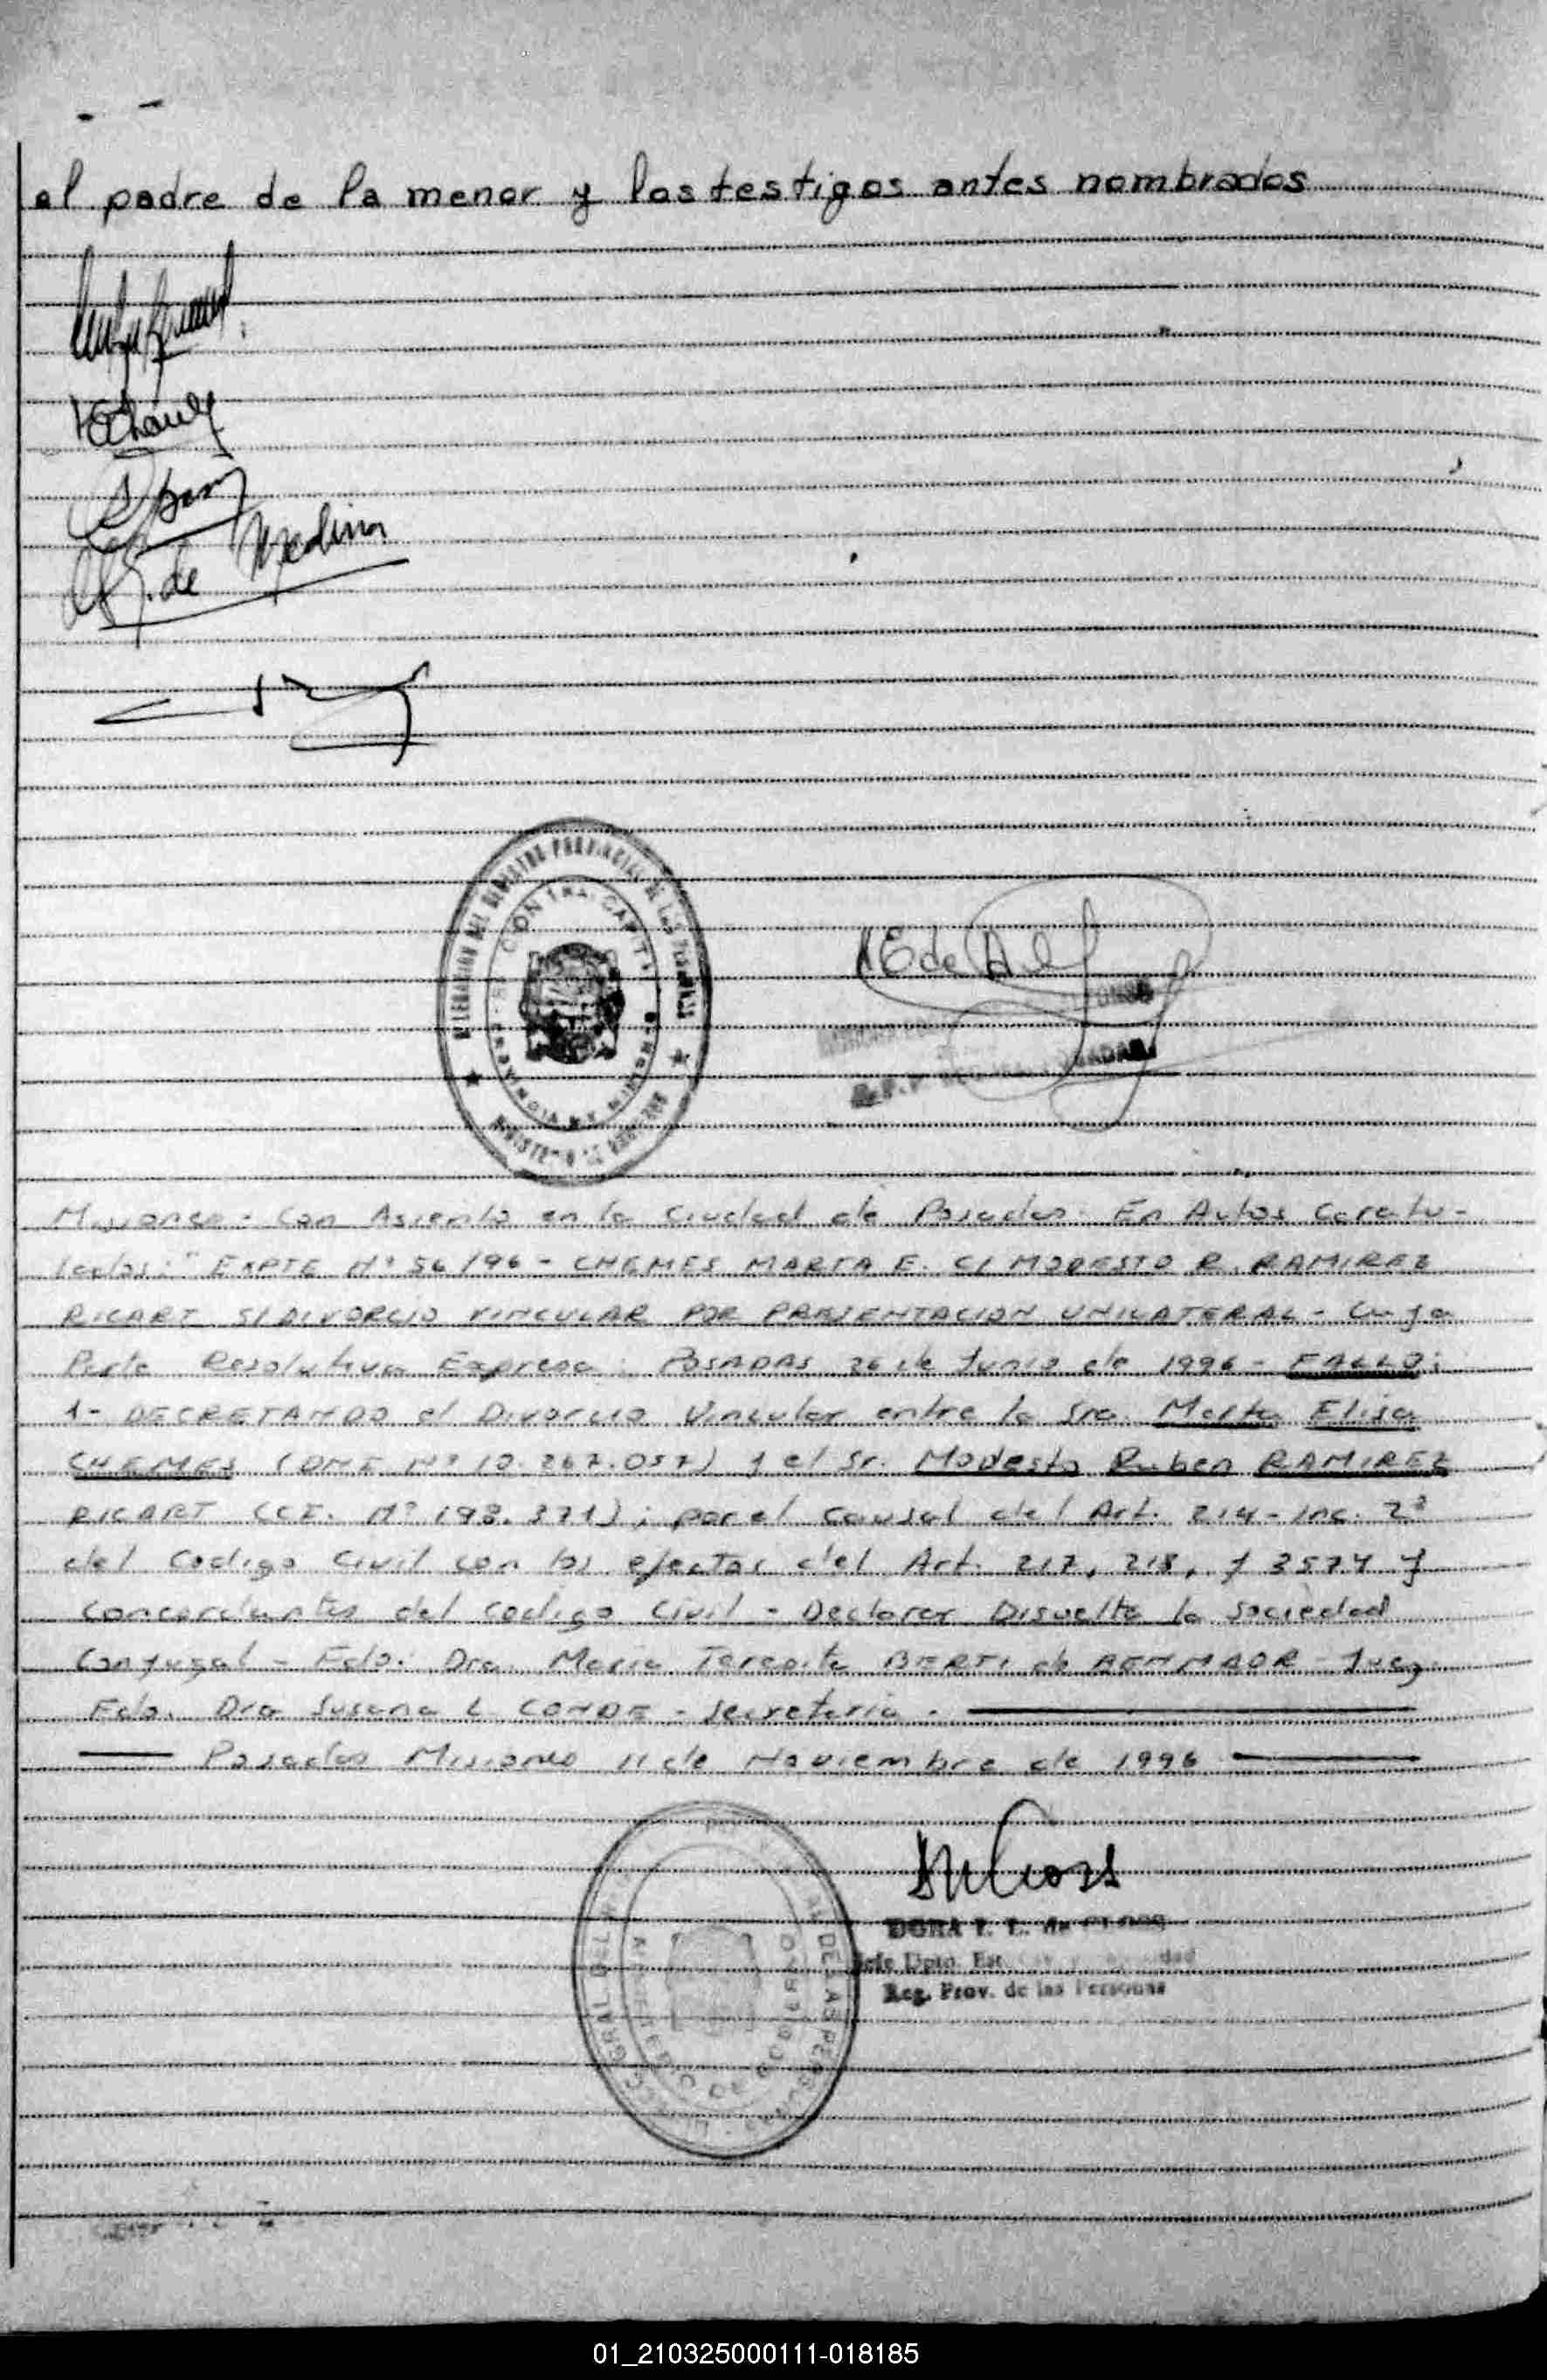 el padre de la menor y los testigos antes nombrados
de Medina
CONTRA
Misiones. Con Asiento en la Ciudad de Posadas. En Autos Caratu-
lados: "EXPTE Nº 56/96 - CHEMES MARTA E. C/ MODESTO R. RAMIREZ
RICART S/ DIVORCIO VINCULAR POR PRESENTACION UNILATERAL - Cuya
Parte Resolutiva Expresa: POSADAS 26 de Junio de 1996 - FALLO:
1- DECRETANDO el Divorcio Vincular entre la Sra. Marta Elisa
CHEMES (DNI Nº 10.267.057) y el Sr. Modesto Ruben RAMIREZ
RICART (CI. Nº 198.371); por el causal del Art. 214 - Inc. 2º
del Codigo Civil con los efectos del Art. 217, 218, y 3574 y
Concordantes del Codigo Civil - Declarar Disuelta la Sociedad
Conyugal - Fdo: Dra. Maria Teresita BERTI de BENMAOR - Juez
Fdo. Dra Susana L CONDE - Secretaria.
Posadas Misiones 11 de Noviembre de 1996
DORA
Reg. Prov. de las Personas
01_210325000111-018185